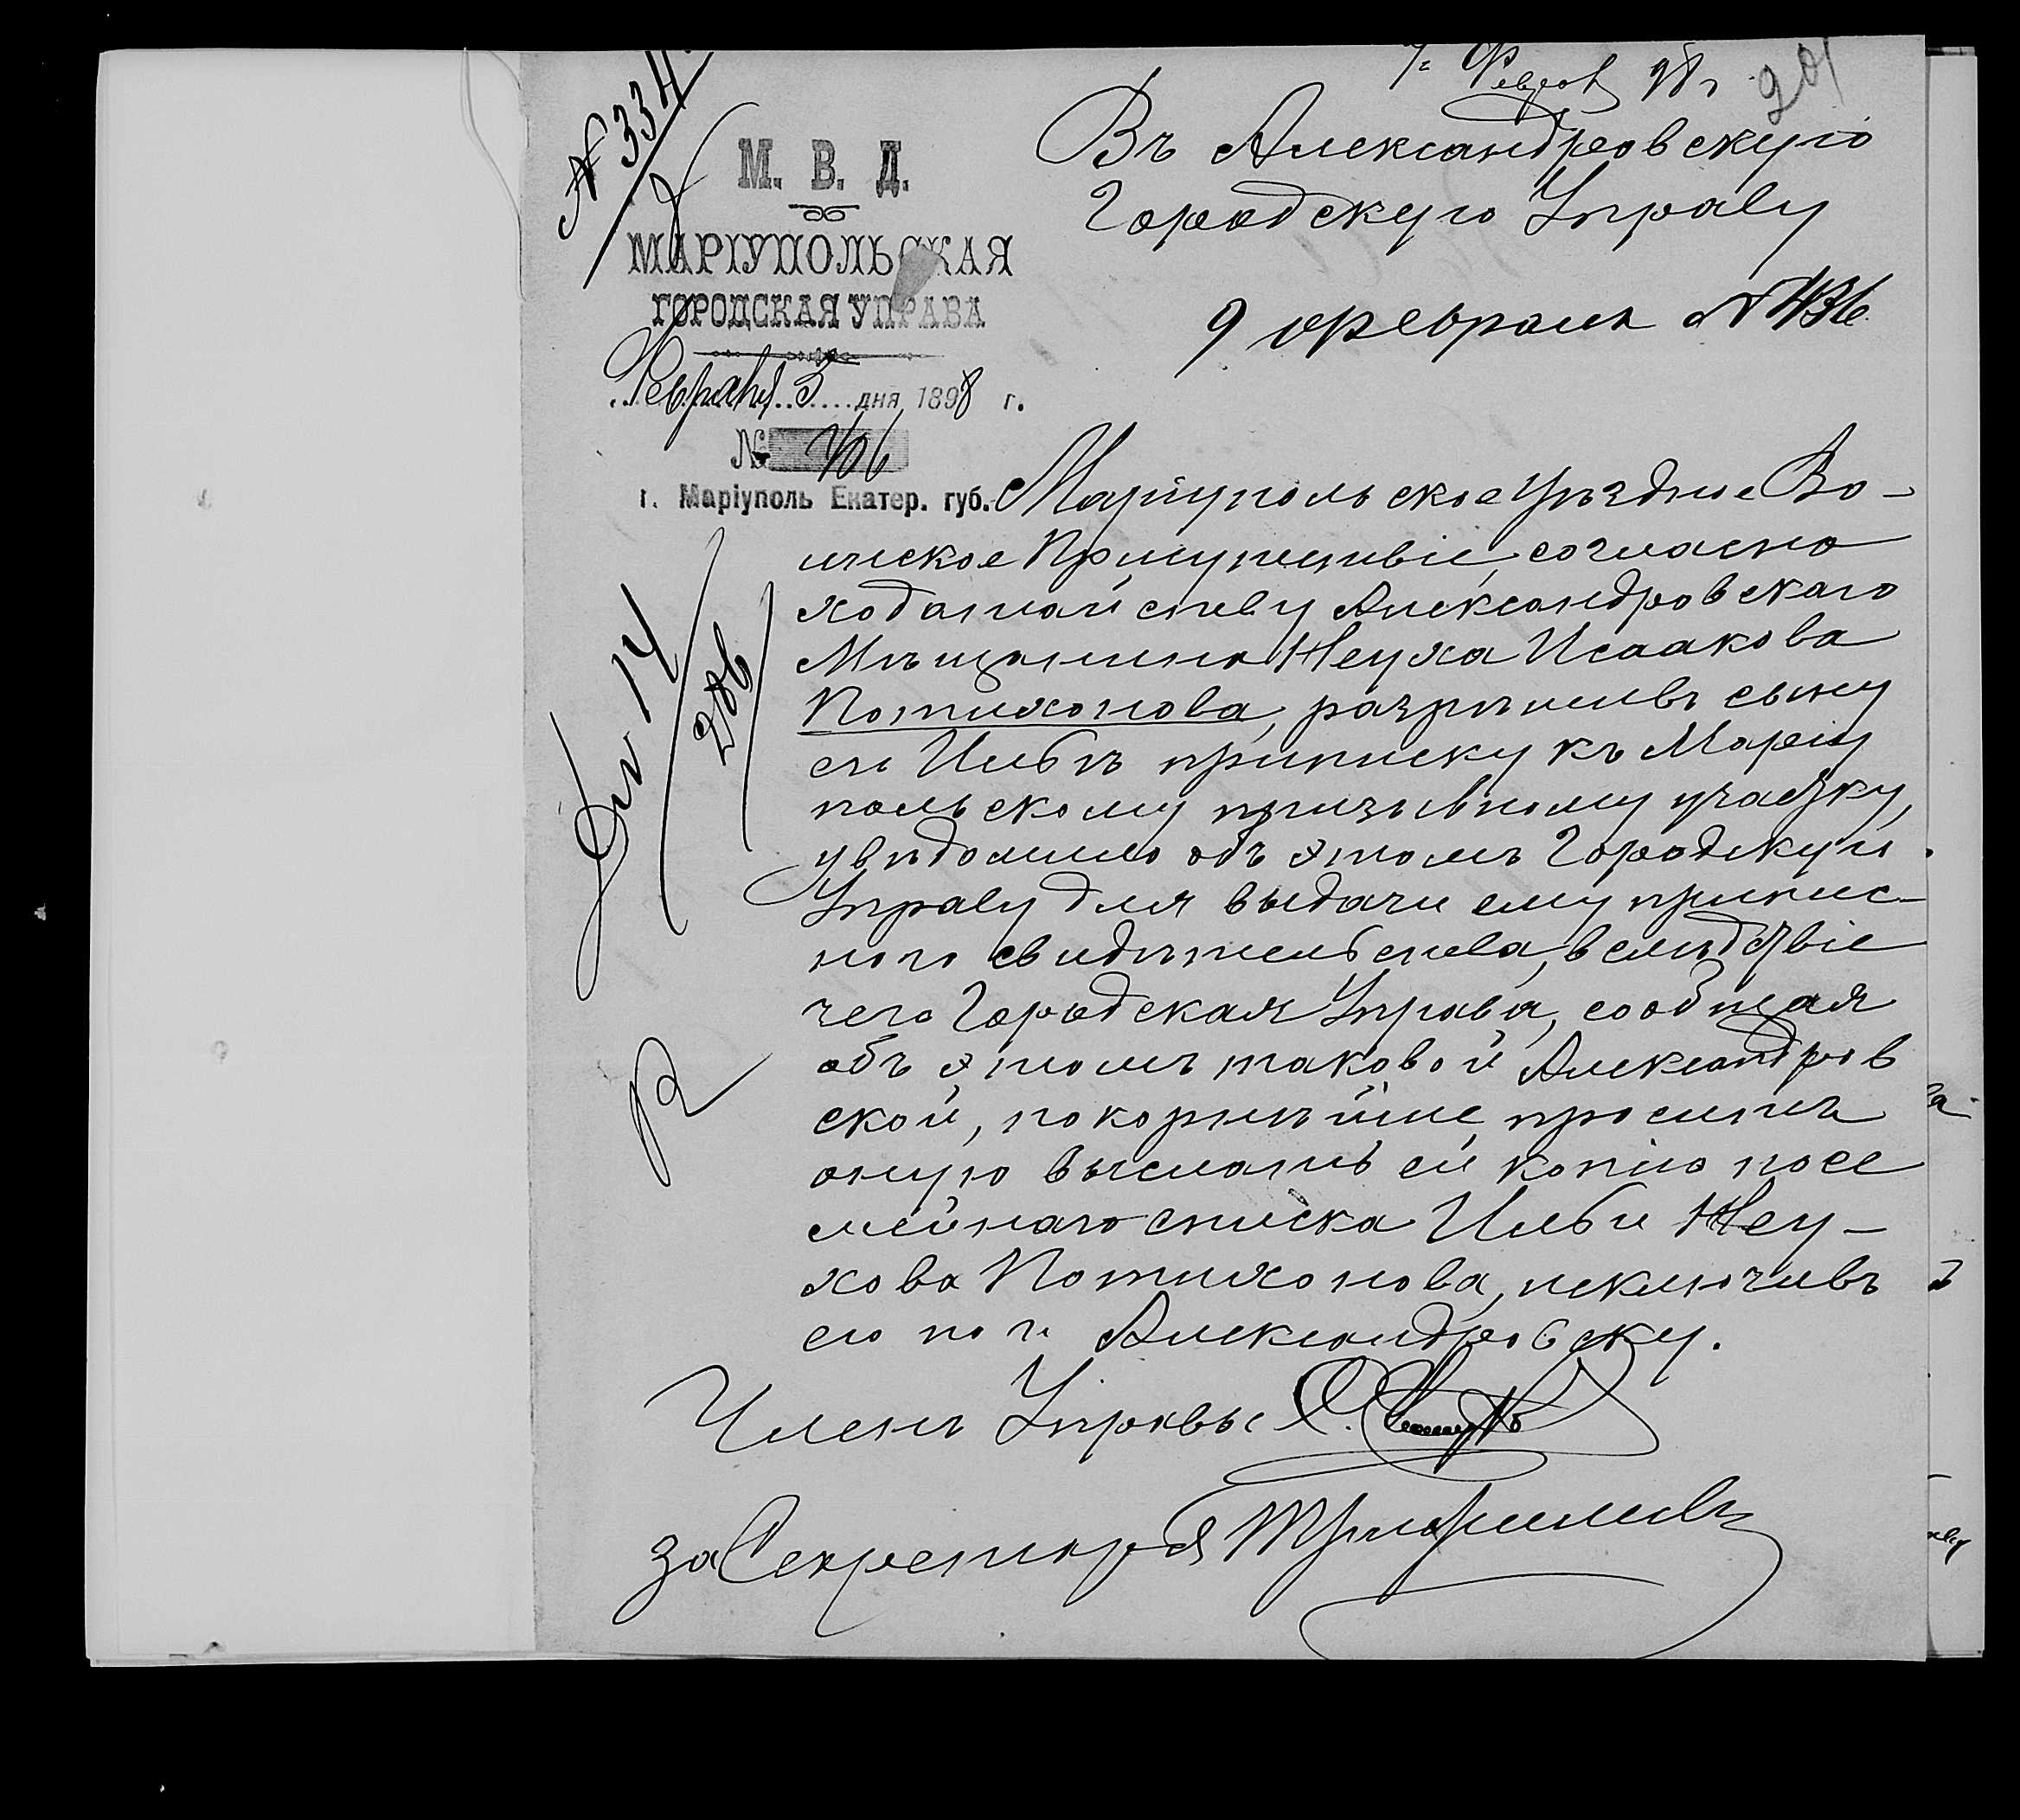 № 334
7 Февр 98 г
201
М. В. Д.
МАРІУПОЛЬСКАЯ
ГОРОДСКАЯ УПРАВА
Февраля 5 дня 1898 г.
№ 406
г. Маріуполь Екатер. губ.
Въ Александровскую
Городскую Управу
9 февраля № 436
14
206
Маріупольское Уѣздное Во-
инское Присутствіе, согласно
ходатайству Александровскаго
Мѣщанина Неуха Исаакова
Потихонова, разрѣшивъ сыну
его Ильѣ приписку къ Маріу
польскому призывному участку,
увѣдомило объ этомъ Городскую
Управу для выдачи ему припис-
ного свидѣтельства, вслѣдствіе
чего Городская Управа, сообщая
объ этомъ таковой Александров
ской, покорнѣйше проситъ
оную выслать ей копію посе
мейнаго списка Ильи Неу-
хова Потихонова, исключивъ
его по г. Александровску.
Членъ Управы
за Секретаря